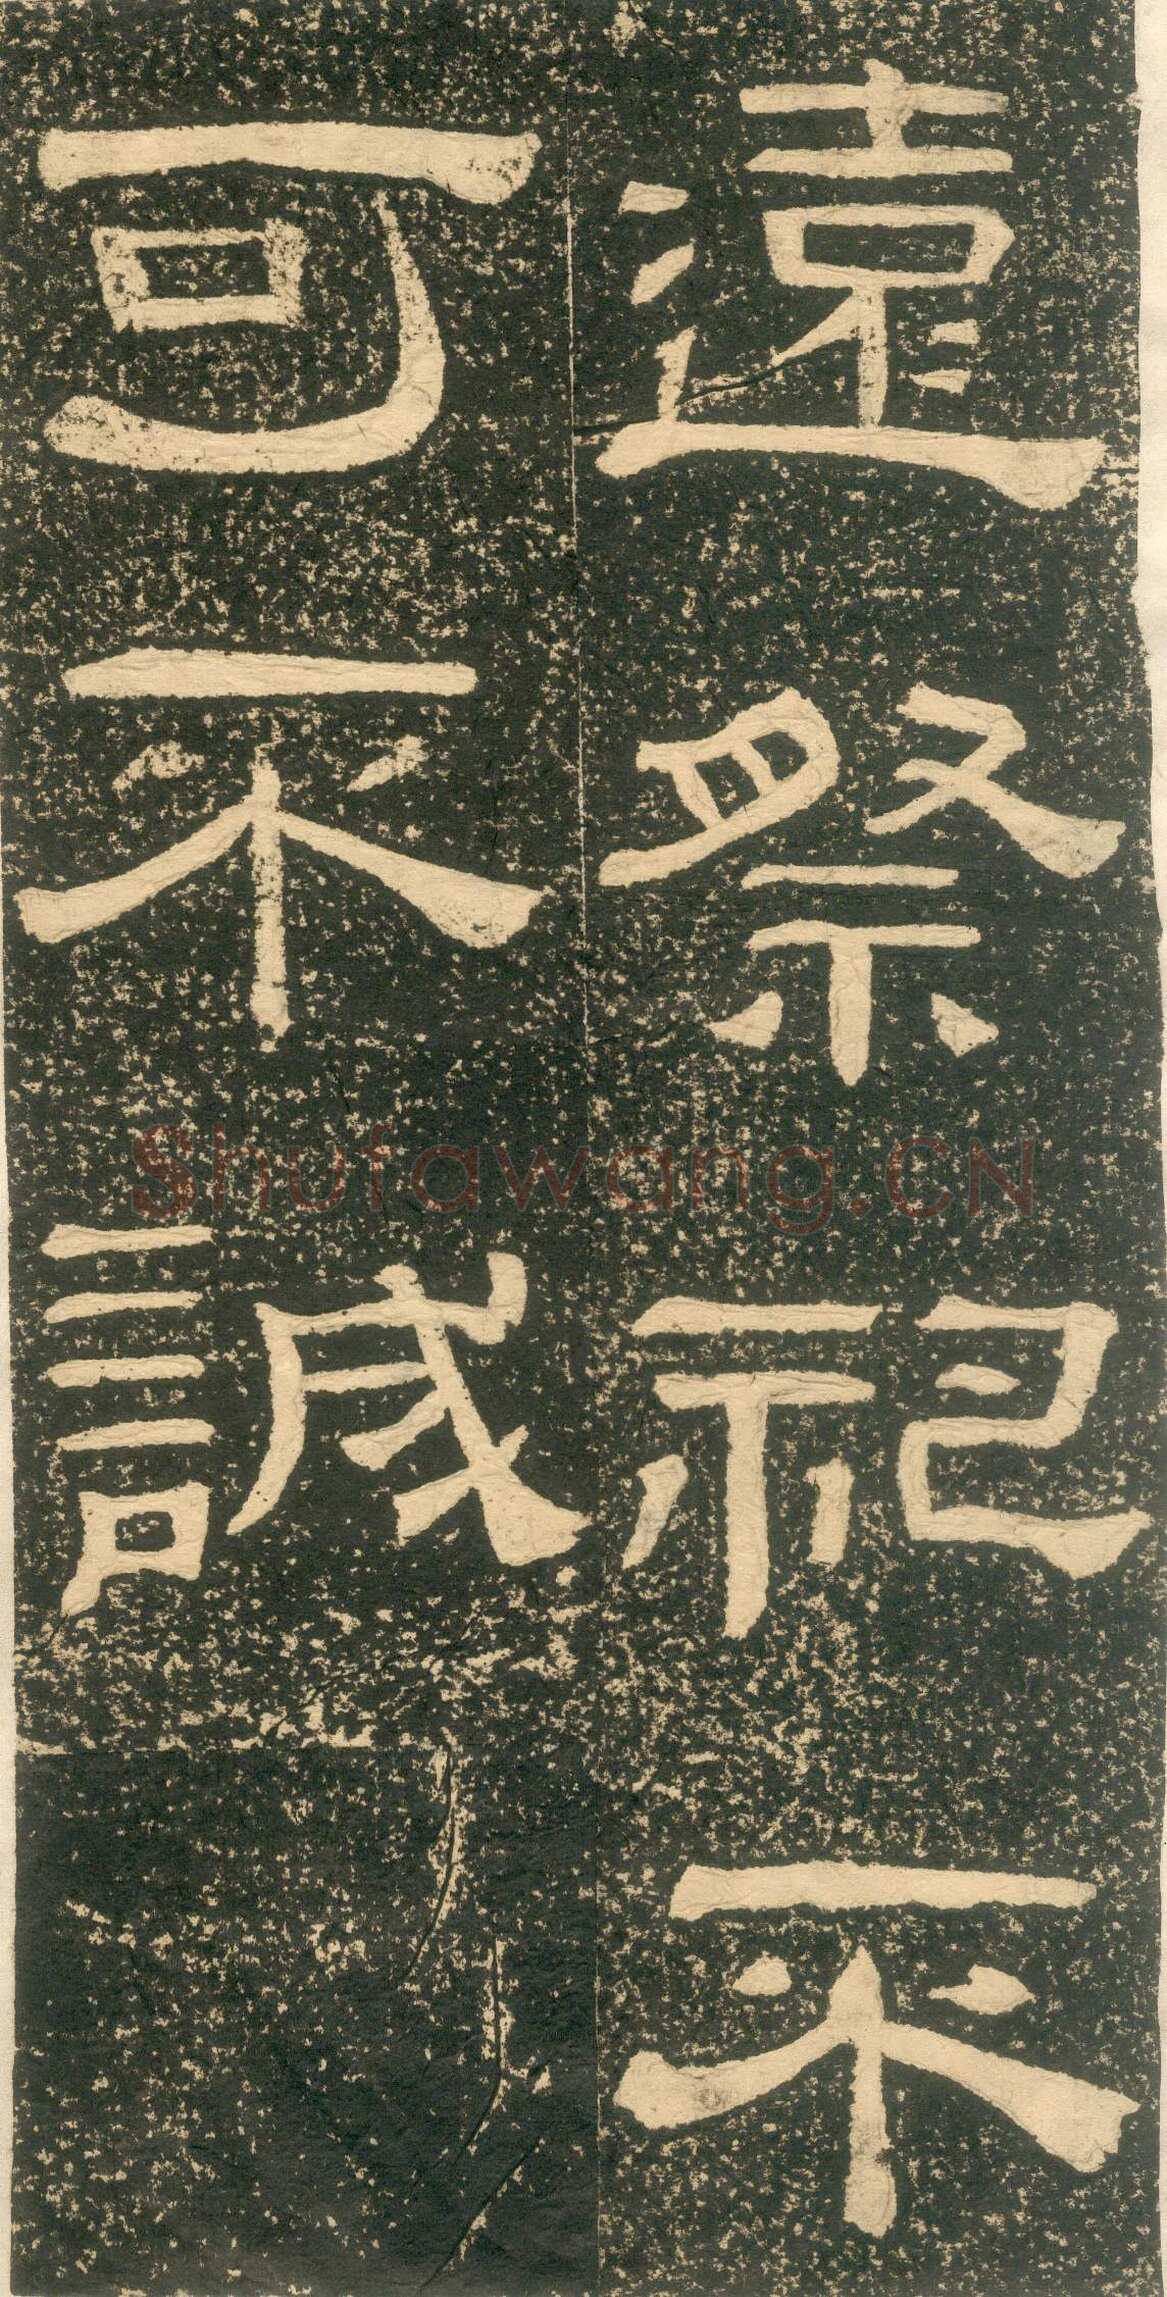 遠祭祀不
可不誠
Shufawang.CN